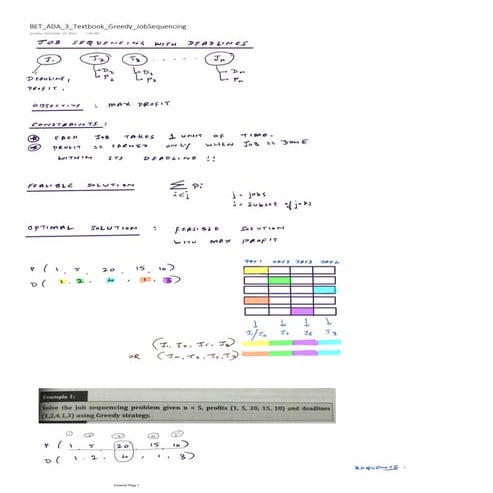 BET_ADA_3_Textbook_Greedy_JobSequencing
JOB SEQUENCING WITH DEADLINES
J1 J2 J3 ..... Jn
DEADLINE, D2 D3 Dn
PROFIT. P2 P3 Pn
OBJECTIVE : MAX PROFIT
CONSTRAINTS:
EACH JOB TAKES 1 UNIT OF TIME.
PROFIT IS EARNED ONLY WHEN JOB IS DONE
WITHIN ITS DEADLINE !!
FEASIBLE SOLUTION Σ Pi
i∈j
j = jobs
i = subset of jobs
OPTIMAL SOLUTION : FEASIBLE SOLUTION
WITH MAX PROFIT
DAY 1 DAY 2 DAY 3 DAY 4
P ( 1, 5, 20, 15, 10)
D ( 1, 2, 4, 1, 3)
J1/J4 J2 J5 J3
(J1, J2, J5, J3)
OR (J4, J2, J5, J3)
Example 1:
Solve the job sequencing problem given n = 5, profits (1, 5, 20, 15, 10) and deadlines
(1,2,4,1,3) using Greedy strategy.
1 2 3 4 5
P ( 1, 5, 20, 15, 10)
D ( 1, 2, 4, 1, 3)
SEQUENCE.
General Page 1